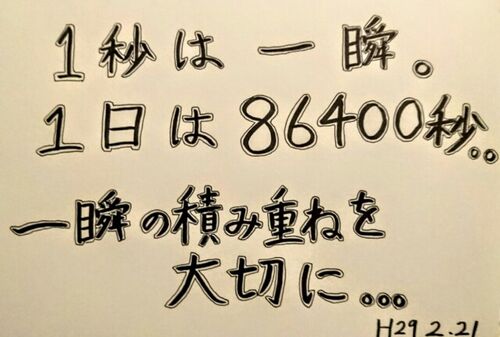 1秒は一瞬。
1日は86400秒。。
一瞬の積み重ねを
大切に。。。
H29 2.21